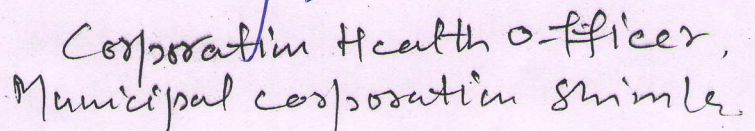 Corporation Health Officer,
Municipal corporation Shimla